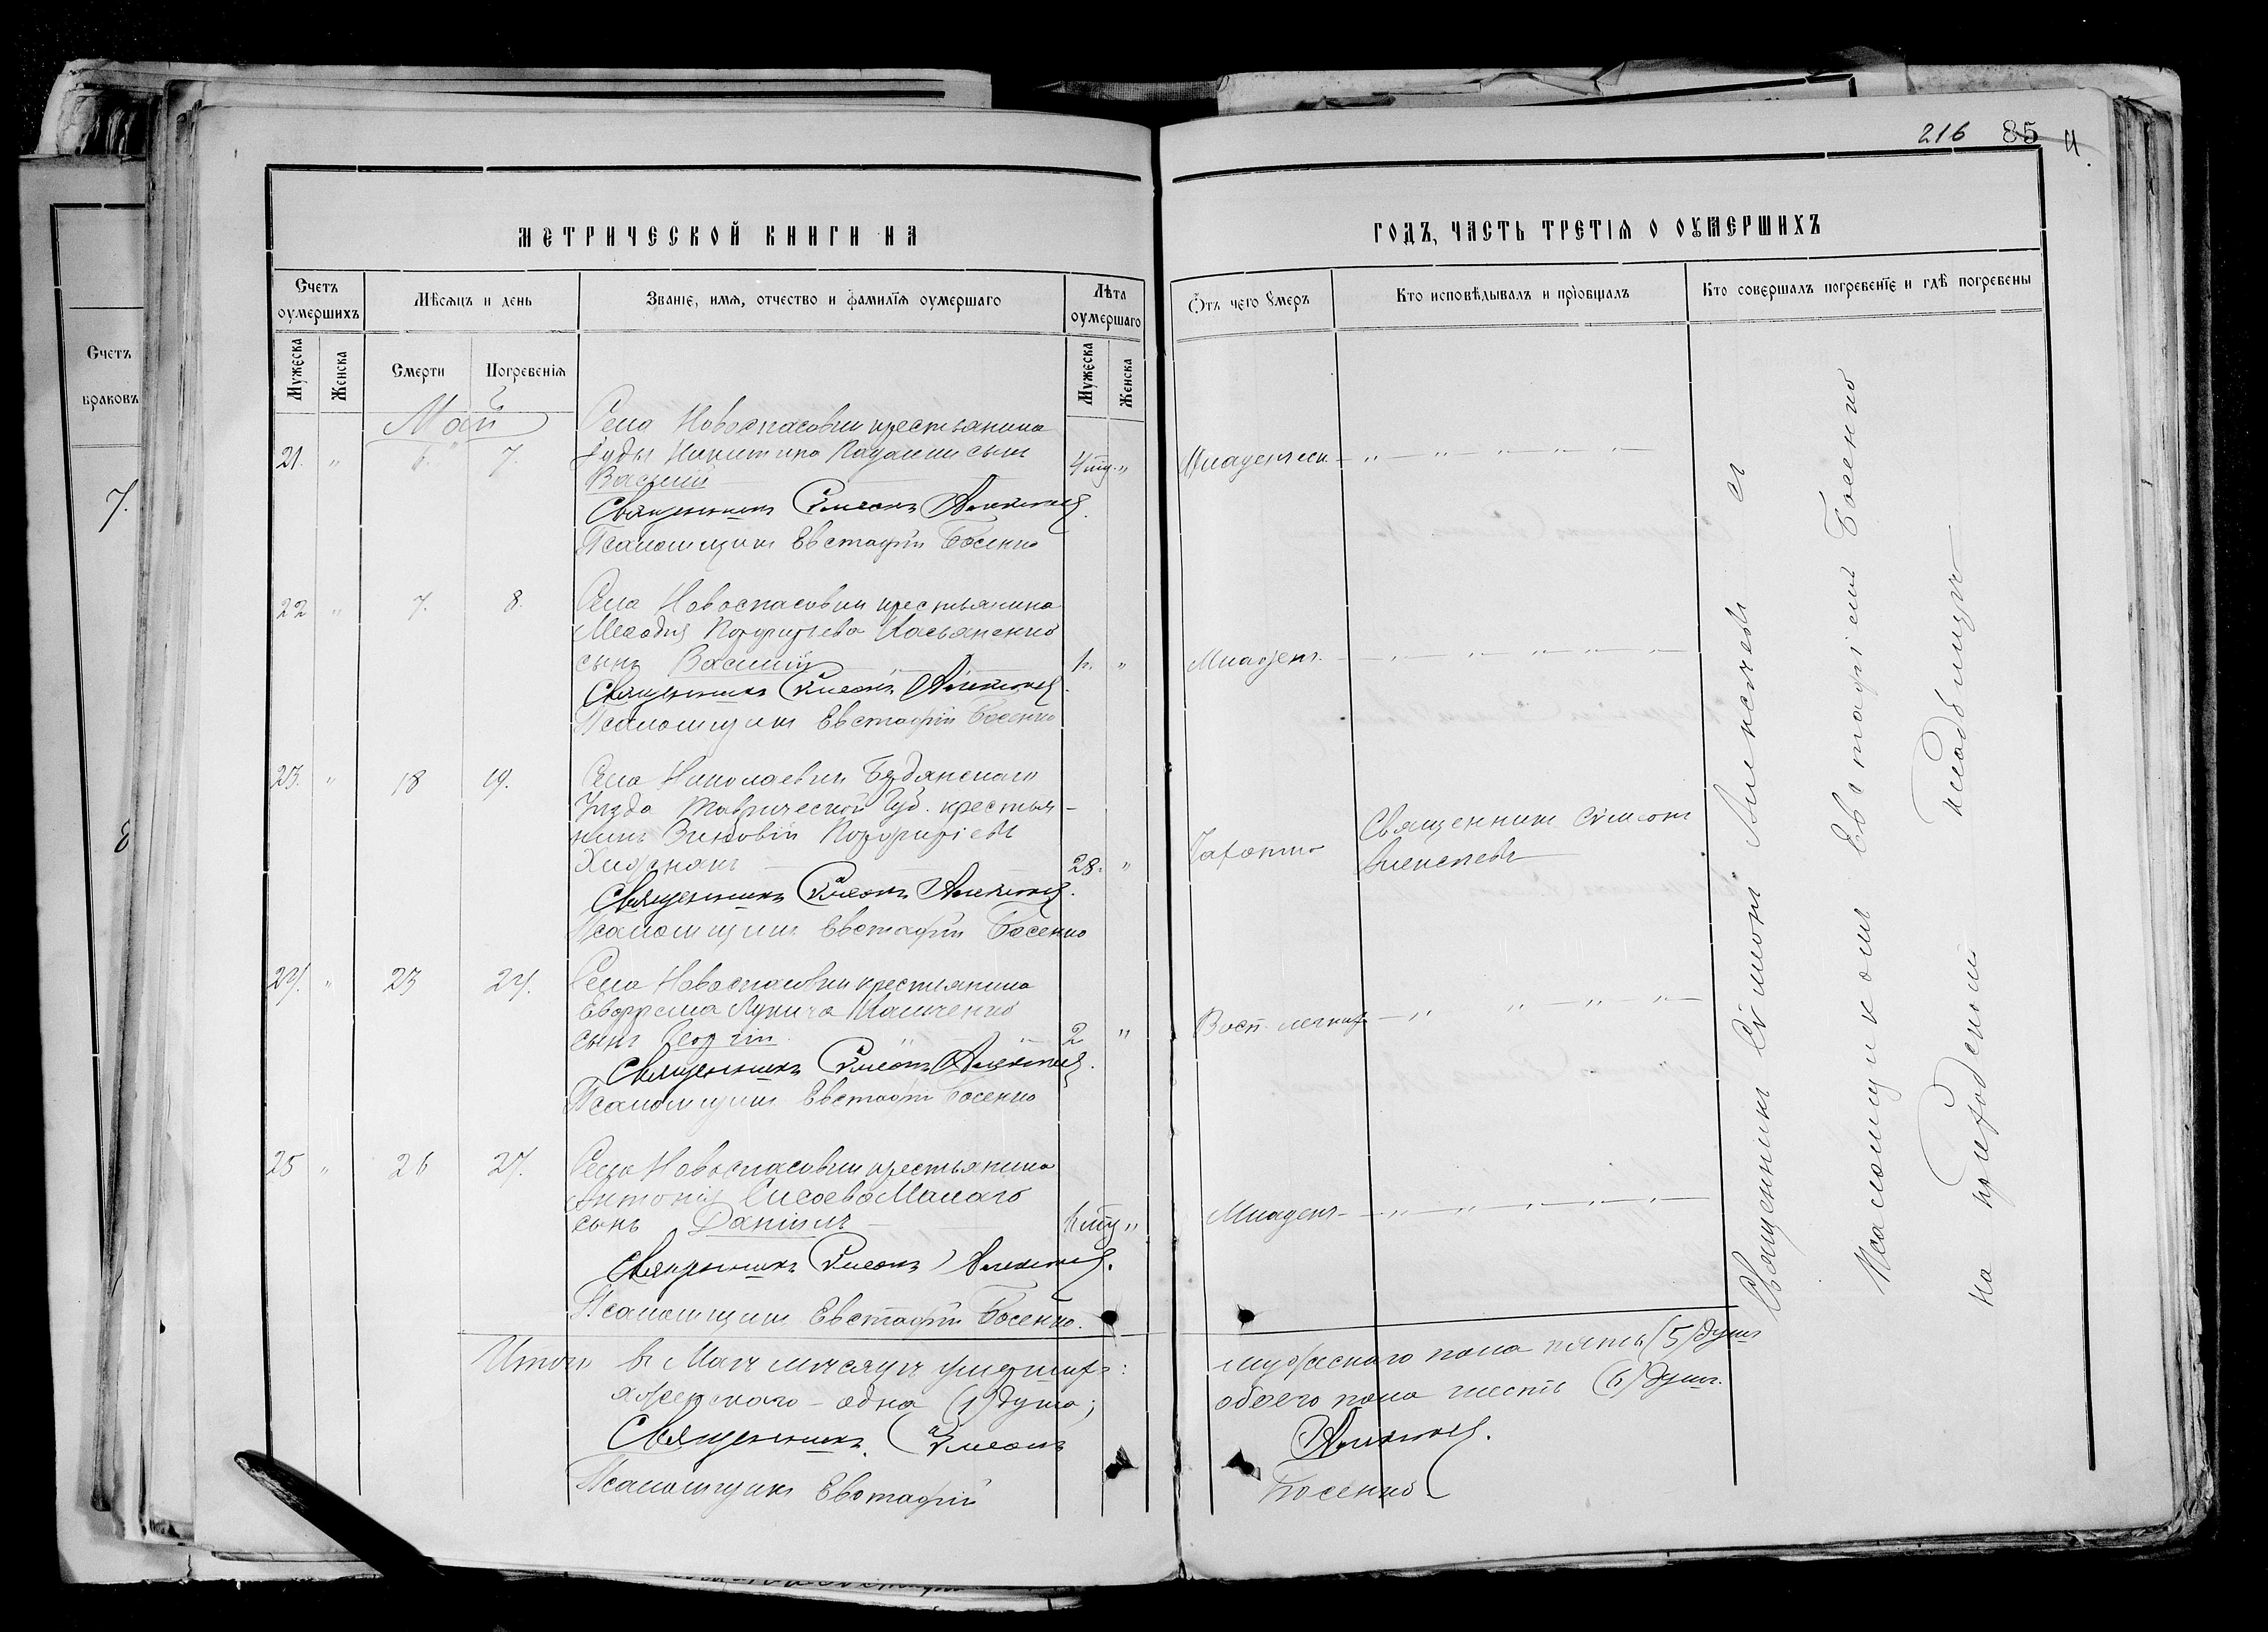 216 85
МЕТРИЧЕСКОЙ КНИГИ НА
ГОДЪ, ЧАСТЬ ТРЕТІЯ О ОУМЕРШИХЪ
Счетъ оумершихъ
Мѣсяцъ и день
Званіе, имя, отчество и фамилія оумершаго
Лѣта оумершаго
Отъ чего умеръ
Кто исповѣдывалъ и пріобщалъ
Кто совершалъ погребеніе и гдѣ погребены
Мужеска
Женска
Смерти
Погребенія
Мужеска
Женска
Счетъ
браковъ
7.
Май
Села Новоспасовки крестьянина
21. " 6. 7. Іуды Никитина сынъ
Василій 4 "
Священникъ Сѵмеонъ Алексѣевъ.
Псаломщикъ Евстафій Босенко
22 " 7. 8. Села Новоспасовки крестьянина
Меѳодія Порфирьева Касьяненко
сынъ Василій " Младен.
Священникъ Сѵмеонъ Алексѣевъ.
Псаломщикъ Евстафій Босенко
23. " 18 19. Села Николаевки Бердянскаго
Уѣзда Таврической Губ. крестья-
нинъ Зиновій Порфиріевъ
28. " Чахотка
Священникъ Сѵмеонъ
Алексѣевъ
Священникъ Сѵмеонъ Алексѣевъ.
Псаломщикъ Евстафій Босенко
24. " 23 24. Села Новоспасовки крестьянина
Евфрема Лукича
сынъ Георгій 2 " Восп. легкихъ
Священникъ Сѵмеонъ Алексѣевъ.
Псаломщикъ Евстафій Босенко
25 " 26 27. Села Новоспасовки крестьянина
Антонія Сисоева Малаго
сынъ Даніилъ " Младен
Священникъ Сѵмеонъ Алексѣевъ.
Псаломщикъ Евстафій Босенко.
Священникъ Сѵмеонъ Алексѣевъ съ
Псаломщикомъ Евстафіемъ Босенко
на приходскомъ кладбищѣ
Итого въ Маѣ мѣсяцѣ умершихъ: мужескаго пола пять (5) душъ
женскаго - одна (1) душа; обоего пола шесть (6) душъ.
Священникъ Сѵмеонъ Алексѣевъ.
Псаломщикъ Евстафій Босенко